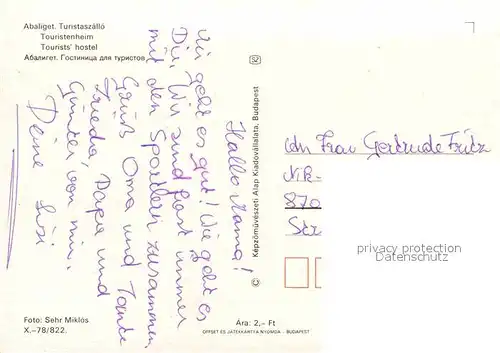 Abaliget. Turistaszálló
Touristenheim
Tourists' hostel
Абалигет. Гостиница для туристов
Hallo Mama!
Mir geht es gut! Wie geht es
Dir. Wir sind fast immer
mit den Sportlern zusammen.
Grüß Oma und Tante
Frieda, Papa und
Günter von mir.
Deine Susi
Képzőművészeti Alap Kiadóvállalata, Budapest
An Frau Gertrude Fritz
870
privacy protection
Datenschutz
Foto: Sehr Miklós
X.–78/822.
Ára: 2,– Ft
OFFSET ÉS JÁTÉKKÁRTYA NYOMDA – BUDAPEST